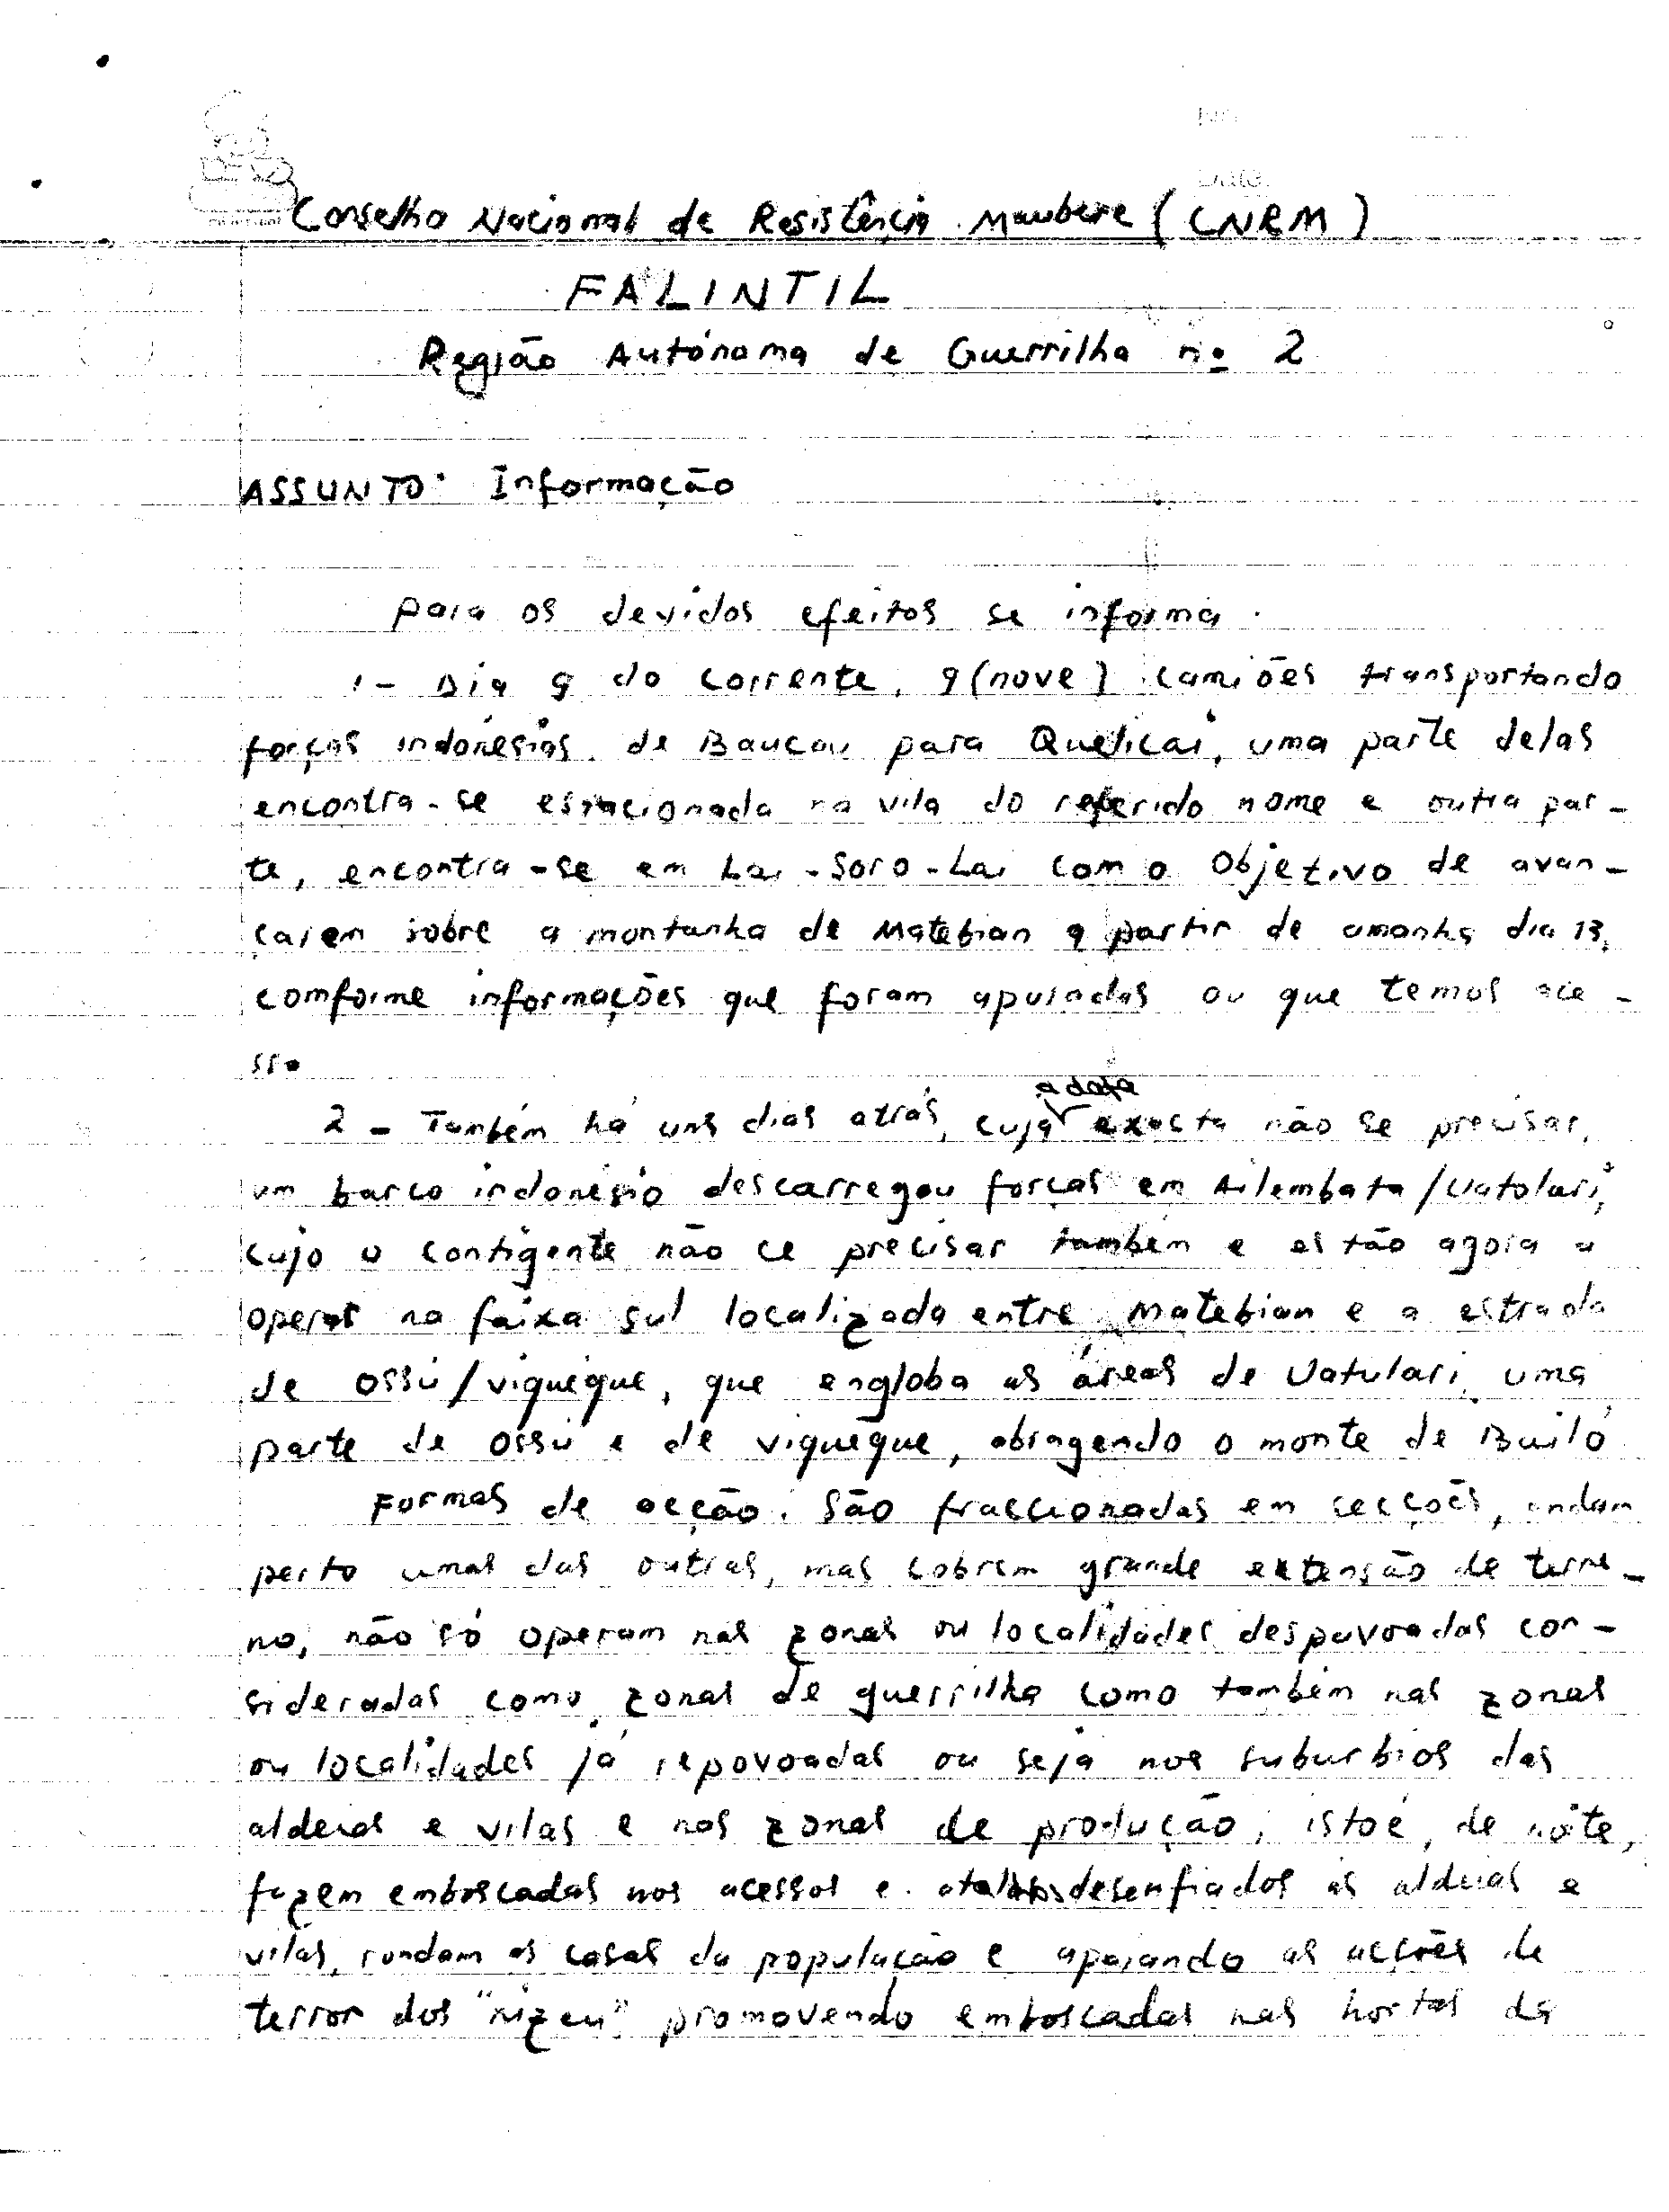 No
Date
Conselho Nacional de Resistência Maubere (CNRM)
FALINTIL
Região Autónoma de Guerrilha nº 2
ASSUNTO: Informação
para os devidos efeitos se informa.
1- Dia 9 do corrente, 9 (nove) camiões transportando
forças indonésias, de Baucau para Quelicai, uma parte delas
encontra-se estacionada na vila do referido nome e outra par-
te, encontra-se em Lai-Soro-Lai com o Objetivo de avan-
çarem sobre a montanha de Matebian a partir de amanhã dia 13,
comforme informações que foram apuradas ou que temos ace-
sso
2 - Também há uns dias atrás, cuja a data exacta não se precisar,
um barco indonésio descarregou forças em Ailembata/Uatolari,
cujo o contigente não ce precisar também e estão agora a
operar na faixa sul localizada entre Matebian e a estrada
de Ossú/viqueque, que engloba as áreas de Uatulari, uma
parte de Ossú e de viqueque, abragendo o monte de Builó
Formas de acção: São fraccionadas em secções, andam
perto umas das outras, mas cobrem grande extensão de terre-
no, não só operam nas zonas ou localidades despovoadas con-
sideradas como zonas de guerrilha como também nas zonas
ou localidades já repovoadas ou seja nos suburbios das
aldeias e vilas e nas zonas de produção, isto é, de noite,
fazem emboscadas nos acessos e atalhos desenfiados as aldeias e
vilas, rondam as casas da população e apoiando as acções de
terror dos "nizeu" promovendo emboscadas nas hortas da